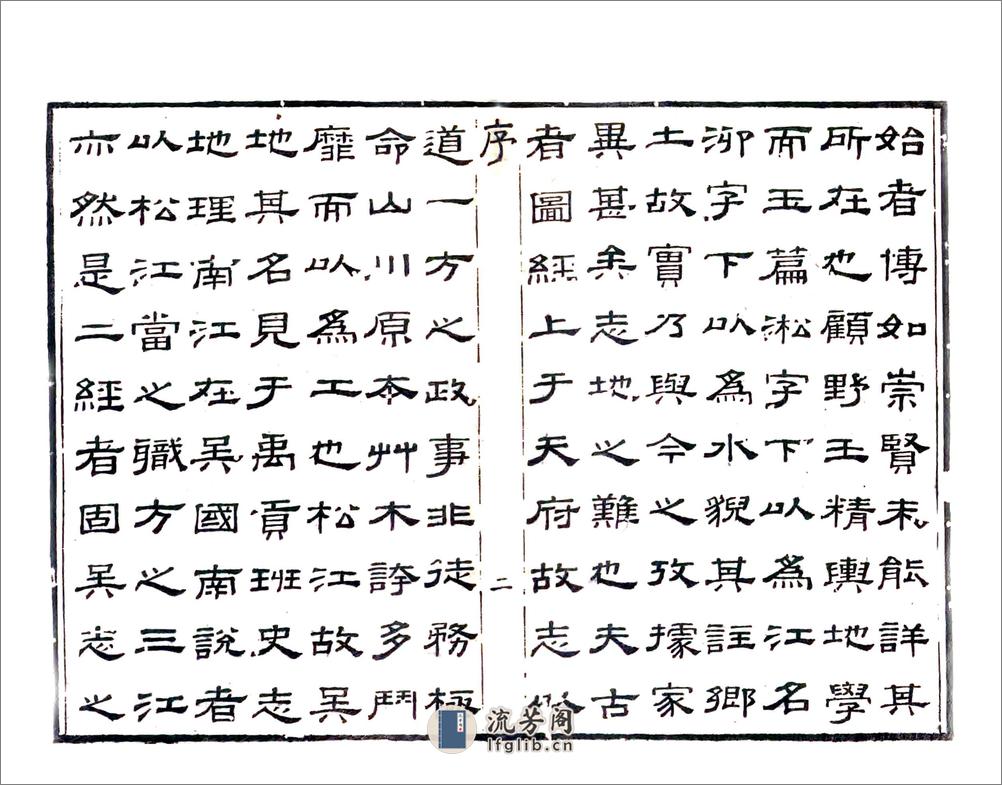 始者傳如崇賢未能詳其
所在也顧野王精輿地學
而玉篇淞字下以為江名
泖字下以為水貌其註鄉
土故實乃與今之攷據家
異甚矣志地之難也夫古
者圖經上于天府故志
序
二
道一方之政事非徒務極
命山川原本艸木誇多鬥
靡而以為工也松江故吳
地其名見于禹貢班史志
地理南江在吳國南說者
以松江當之職方之三江
亦然是二經者固吳志之
流芳阁
lfglib.cn